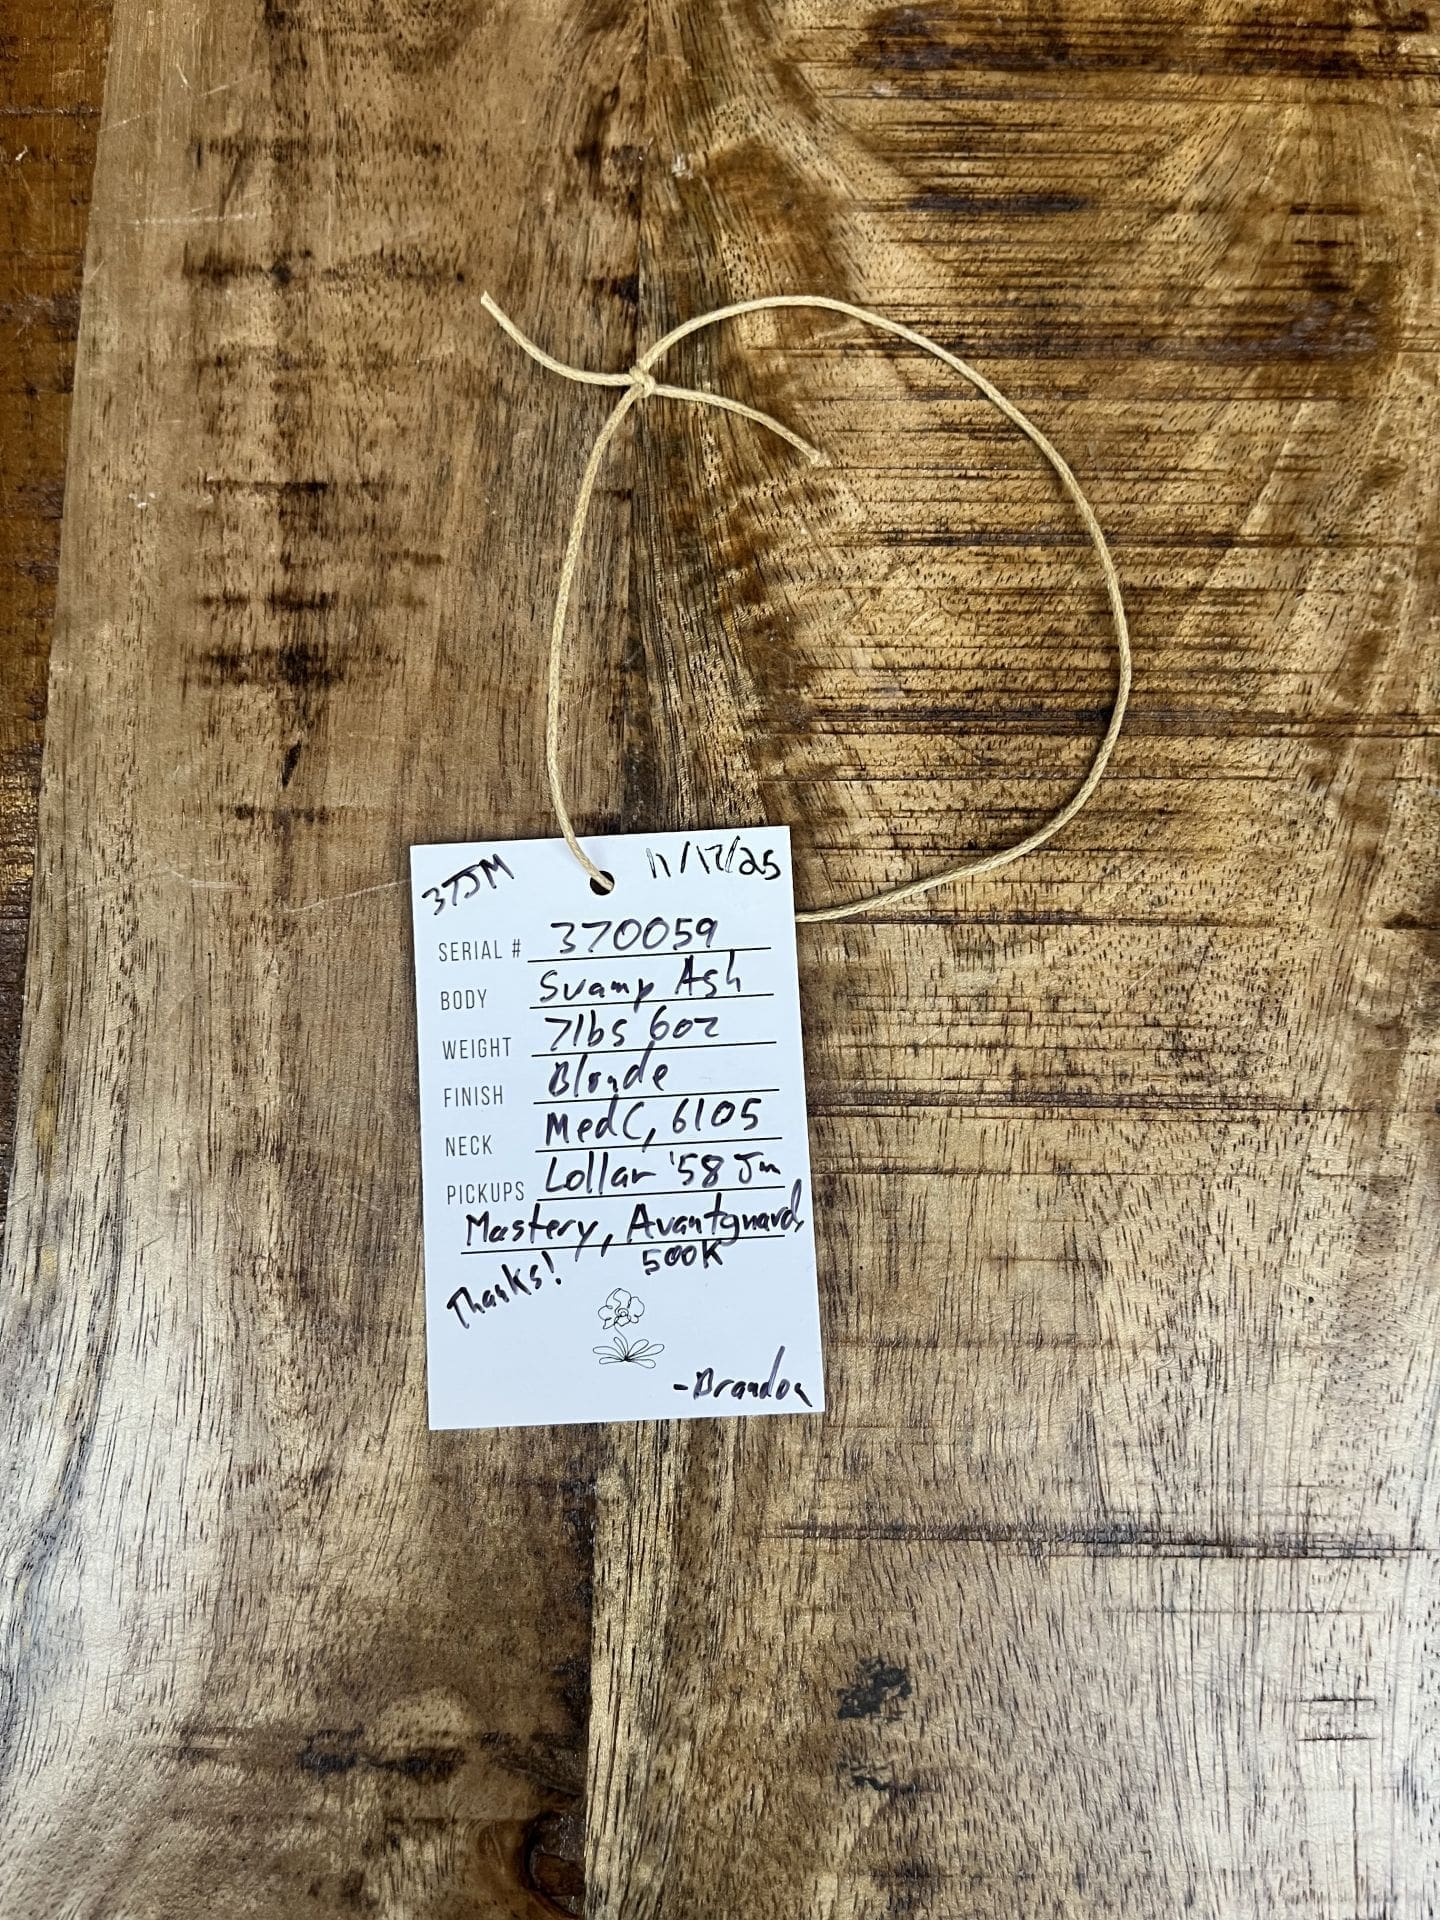 37JM 11/17/25
SERIAL # 370059
BODY Swamp Ash
WEIGHT 7lbs 6oz
FINISH Blonde
NECK Med C, 6105
PICKUPS Lollar '58 Jm
Mastery, Avantguard,
500K
Thanks!
-Brandon